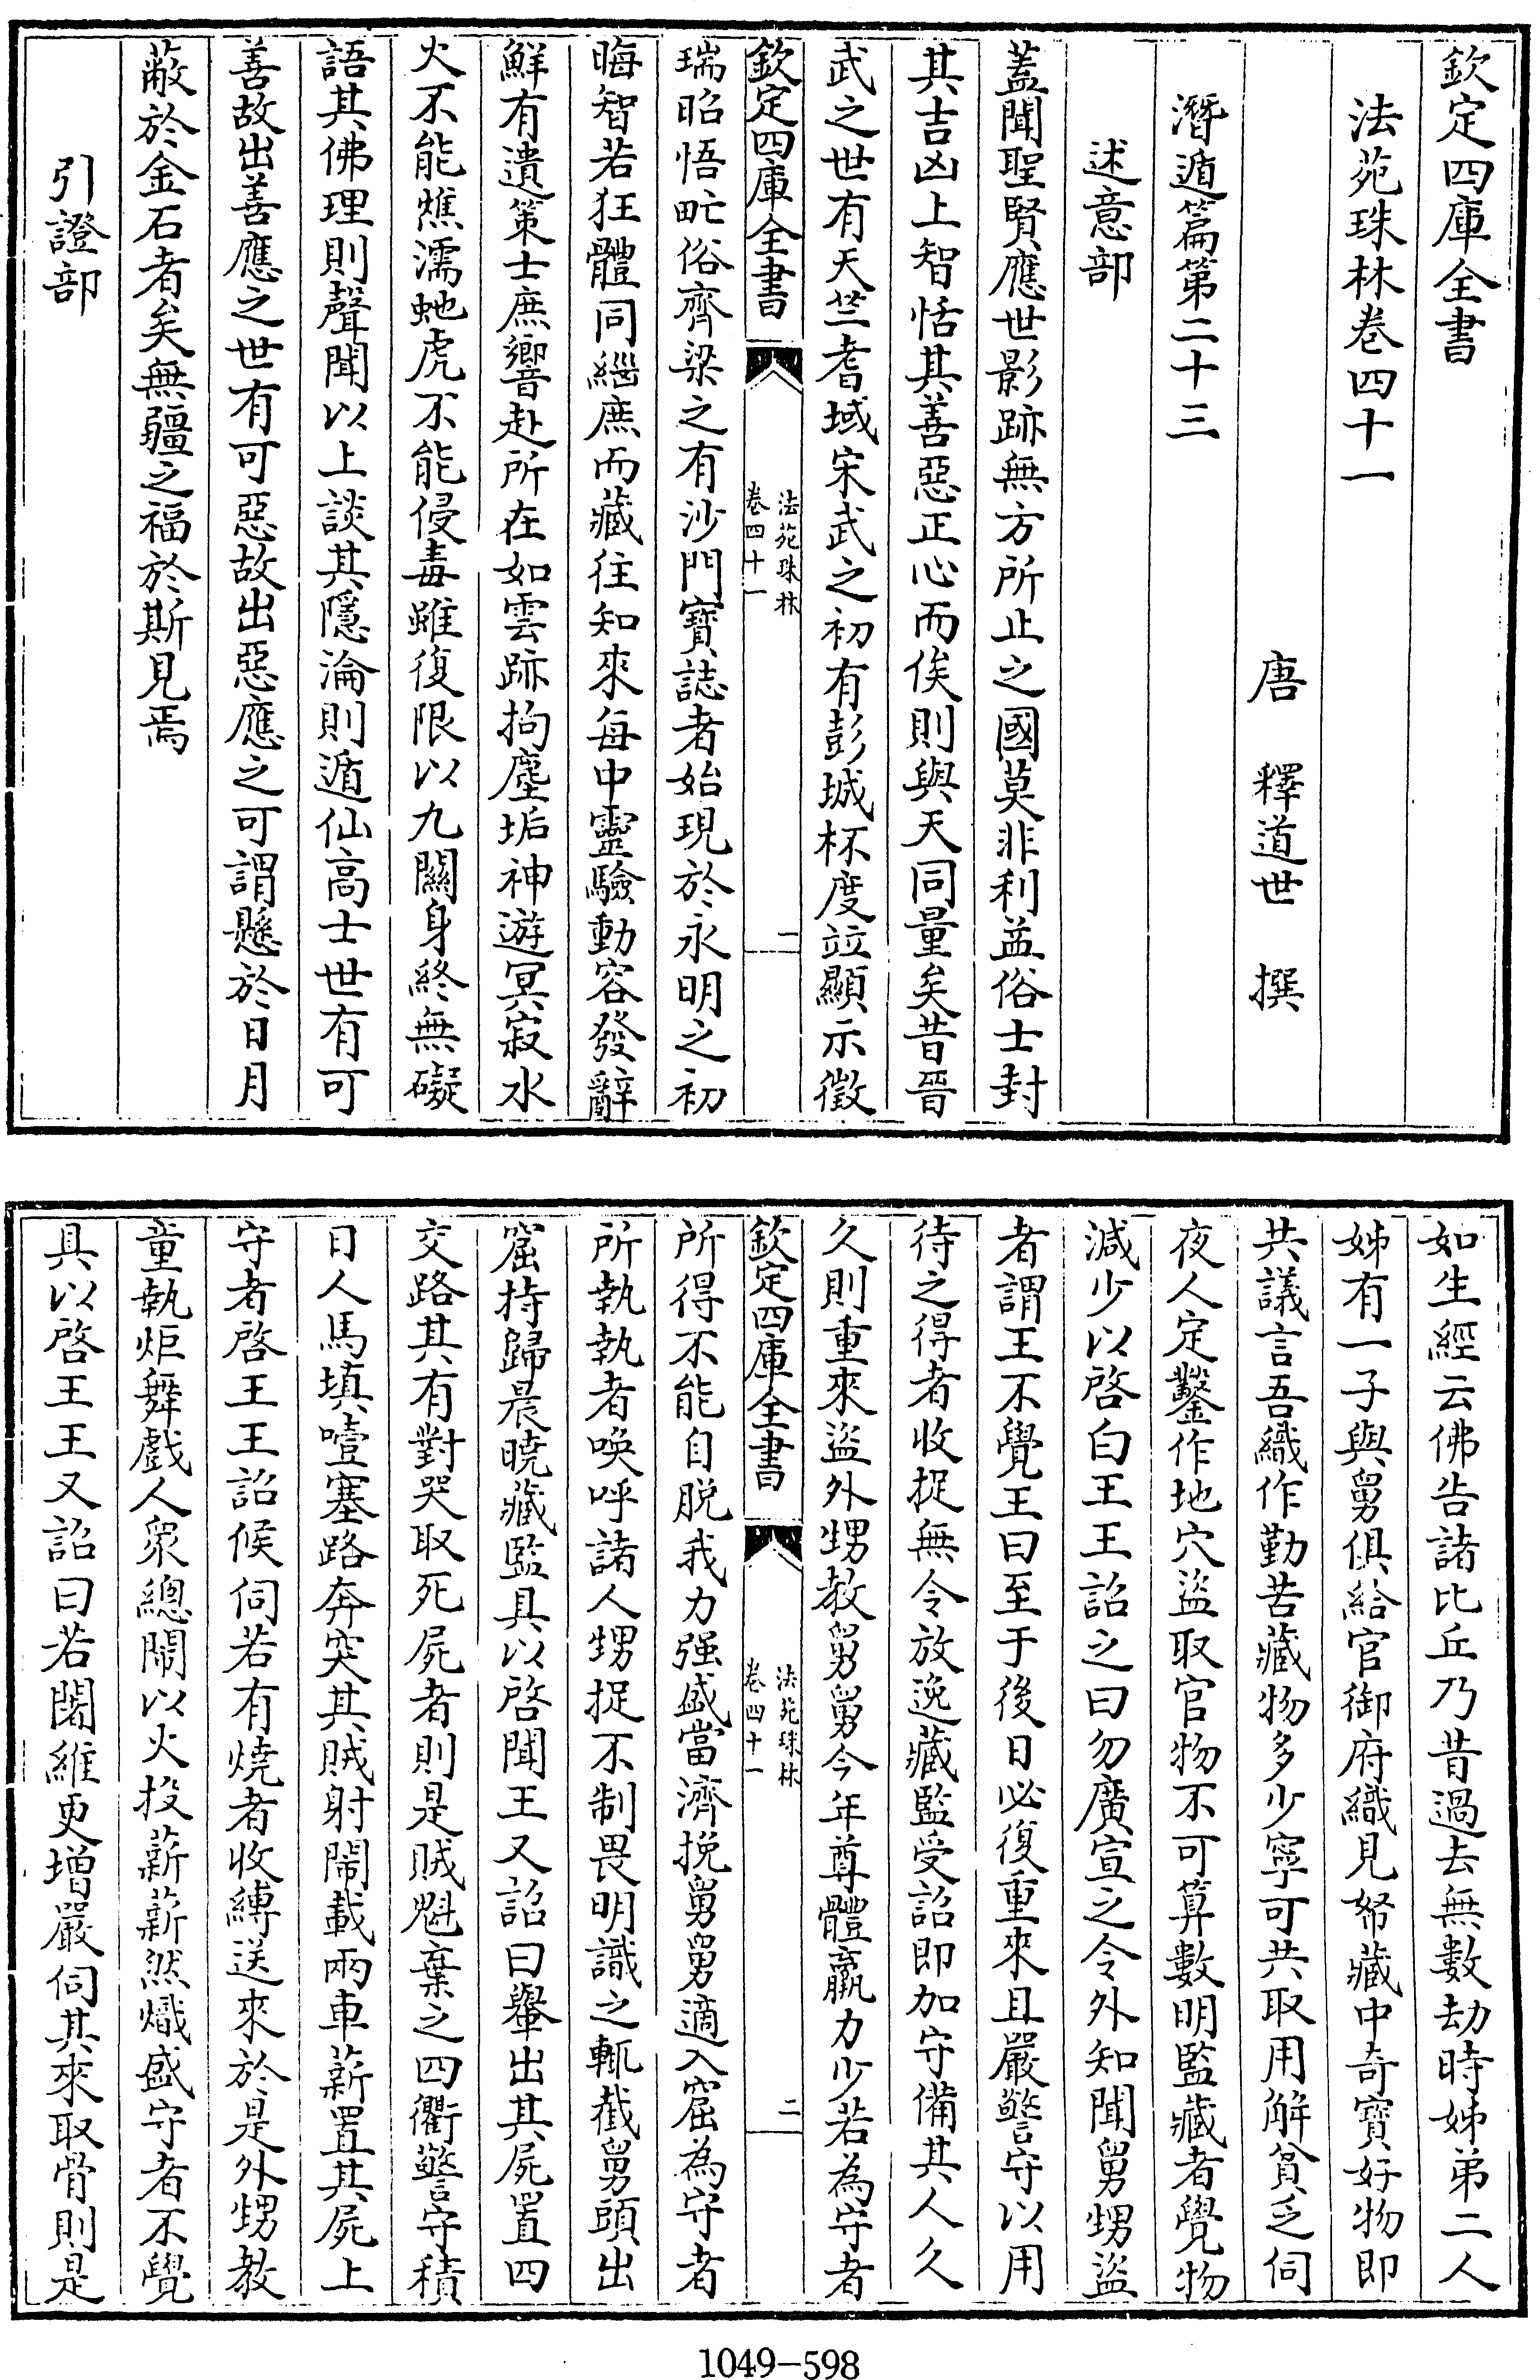 欽定四庫全書
法苑珠林卷四十一
唐 釋道世 撰
潛遁篇第二十三
述意部
蓋聞聖賢應世影跡無方所止之國莫非利益俗士封
其吉凶上智恬其善惡正心而俟則與天同量矣昔晉
武之世有天竺耆域宋武之初有彭城杯度竝顯示徵
欽定四庫全書
法苑珠林
卷四十一
一
瑞昭悟甿俗齊梁之有沙門寶誌者始現於永明之初
晦智若狂體同緇庶而藏往知來每中靈驗動容發辭
鮮有遺策士庶響赴所在如雲跡拘塵垢神遊冥寂水
火不能燋濡虵虎不能侵毒雖復限以九關身終無礙
語其佛理則聲聞以上談其隱淪則遁仙高士世有可
善故出善應之世有可惡故出惡應之可謂懸於日月
蔽於金石者矣無疆之福於斯見焉
引證部
如生經云佛告諸比丘乃昔過去無數劫時姊弟二人
姊有一子與舅俱給官御府織見帑藏中奇寶好物即
共議言吾織作勤苦藏物多少寧可共取用解貧乏伺
夜人定鑿作地穴盜取官物不可算數明監藏者覺物
減少以啓白王王詔之曰勿廣宣之令外知聞舅甥盜
者謂王不覺王曰至于後日必復重來且嚴警守以用
待之得者收捉無令放逸藏監受詔即加守備其人久
久則重來盜外甥教舅舅今年尊體羸力少若為守者
欽定四庫全書
法苑珠林
卷四十一
二
所得不能自脫我力强盛當濟挽舅舅適入窟為守者
所執執者喚呼諸人甥捉不制畏明識之輒截舅頭出
窟持歸晨曉藏監具以啓聞王又詔曰轝出其屍置四
交路其有對哭取死屍者則是賊魁棄之四衢警守積
日人馬填噎塞路奔突其賊射鬧載兩車薪置其屍上
守者啓王王詔候伺若有燒者收縛送來於是外甥教
童執炬舞戲人衆總鬧以火投薪薪然熾盛守者不覺
具以啓王王又詔曰若闍維更增嚴伺其來取骨則是
1049-598